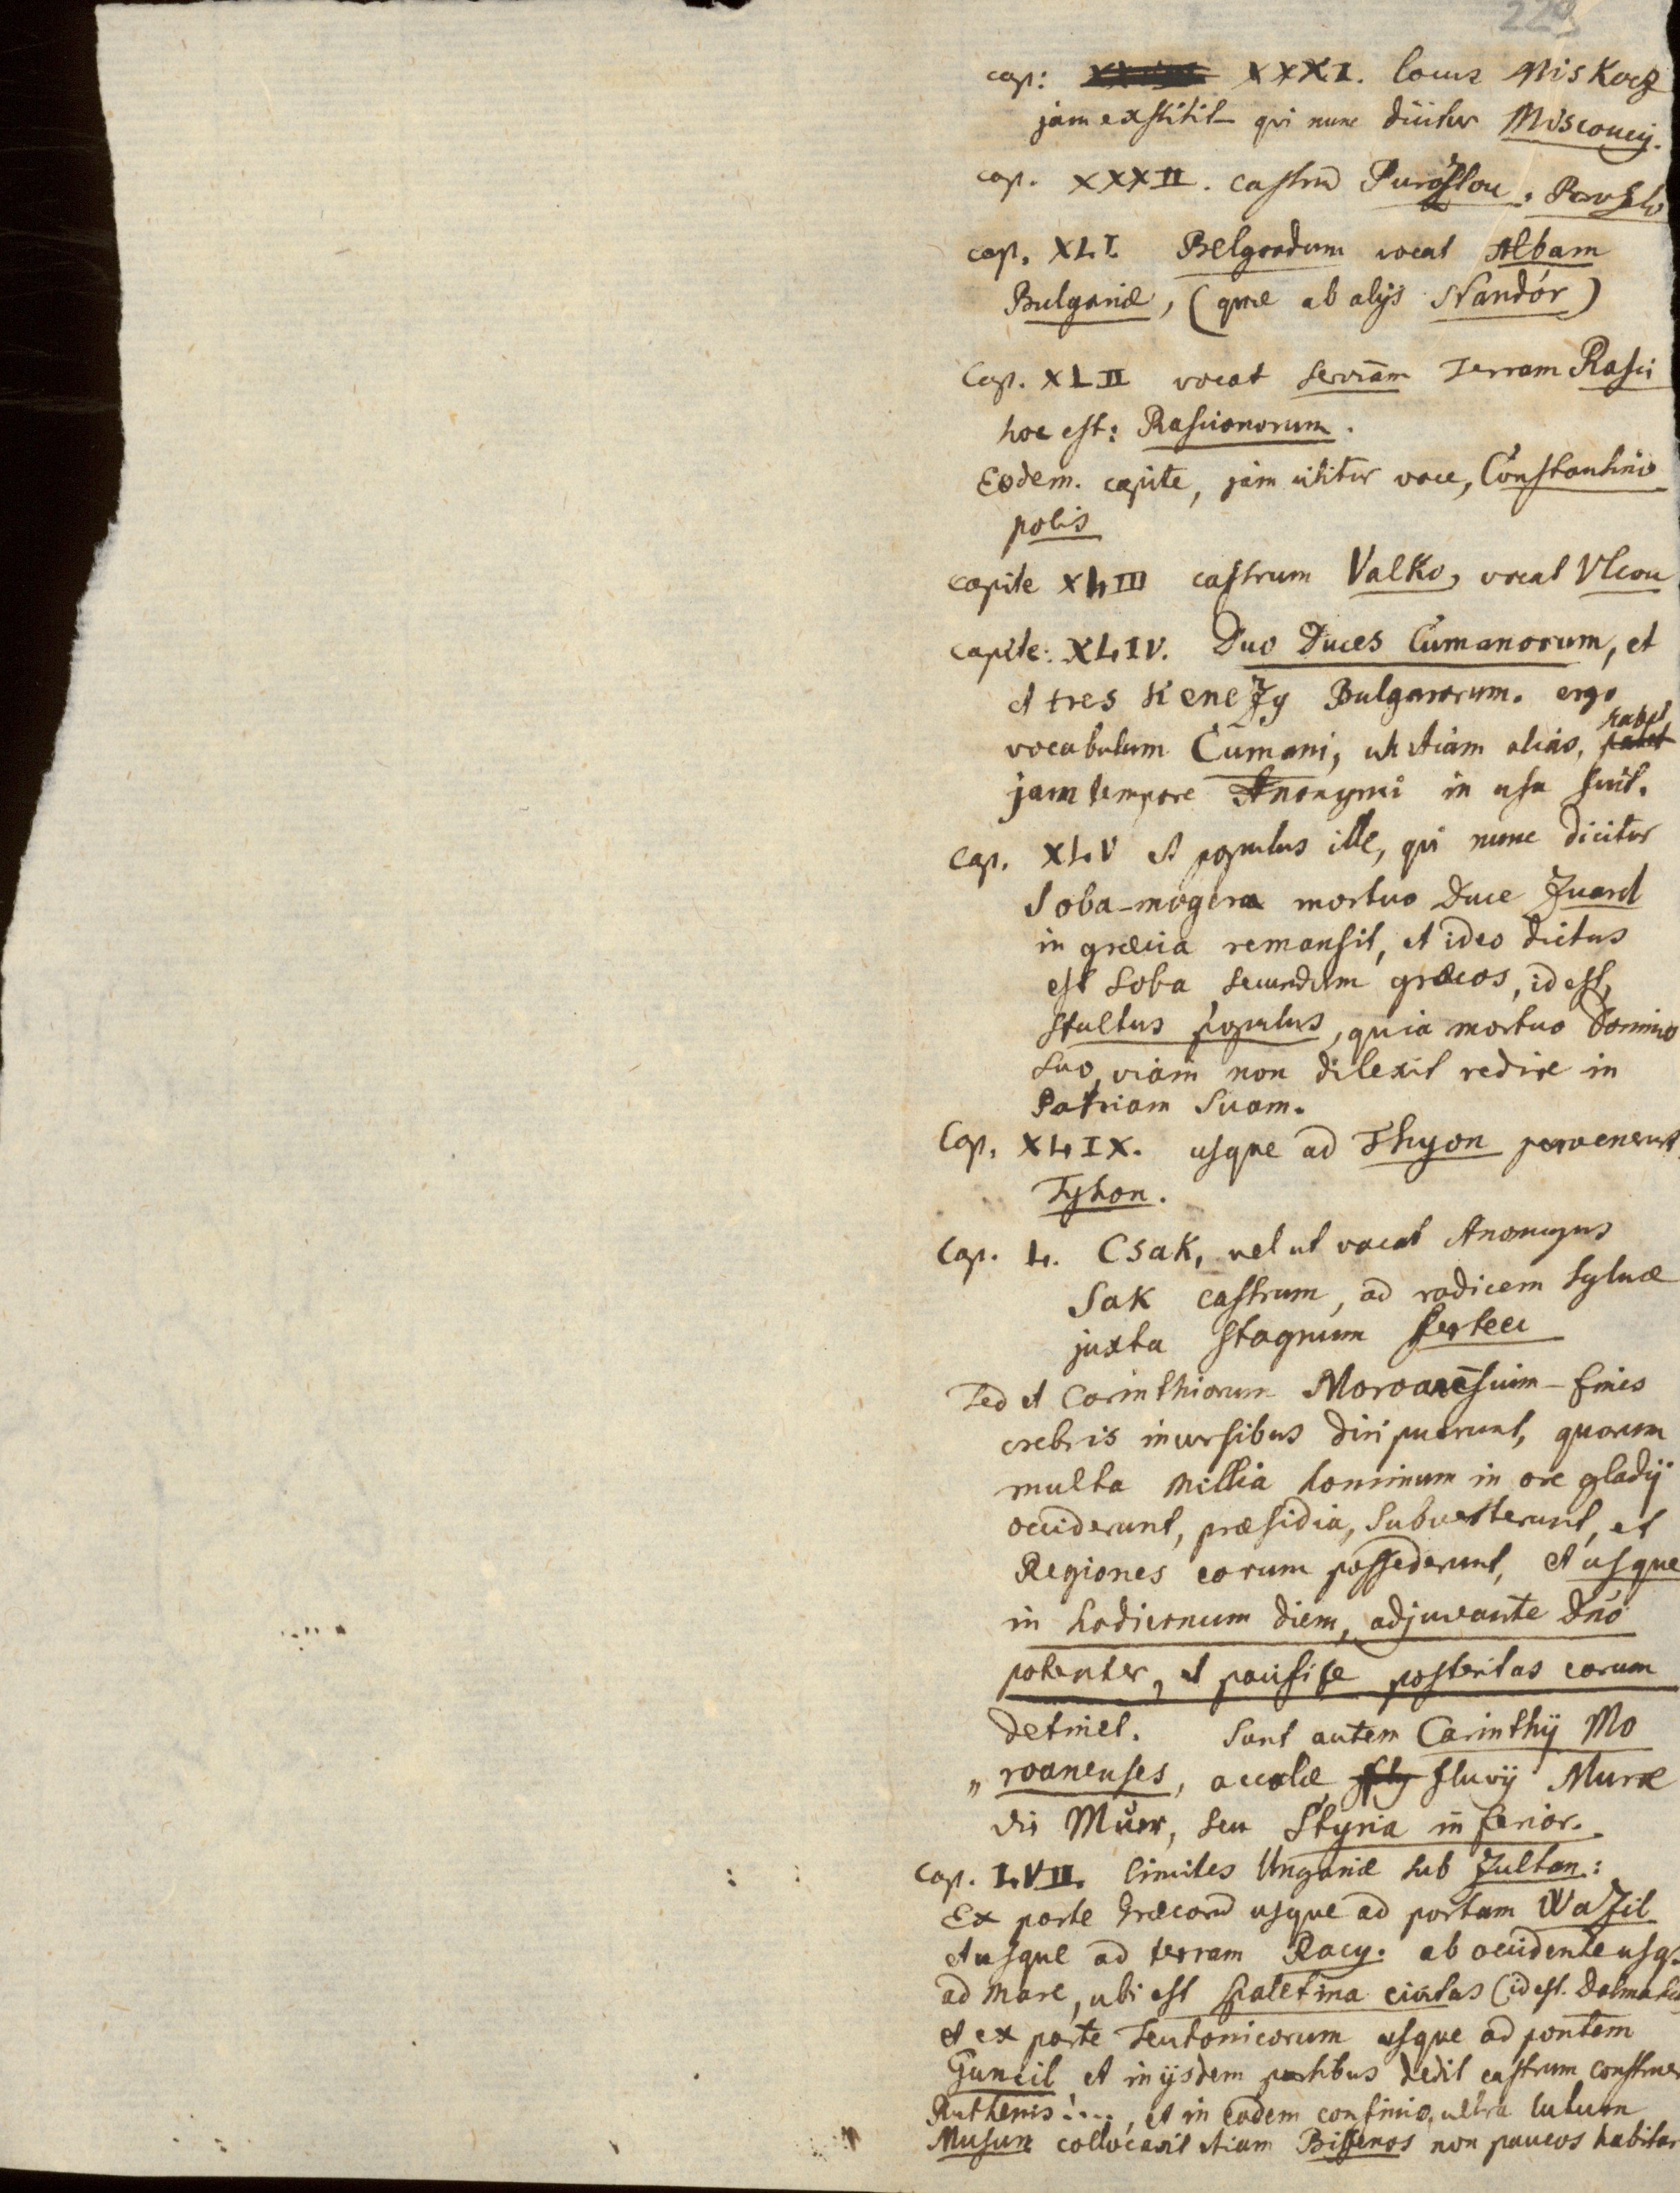 229
cap: XXXI. locus Miskocz
jam exstitit qui nunc dicitur Miscoucy.
cap. XXXII. castrũ Purozlou, Poroszlo
cap. XLI. Belgradum vocat Albam
Bulgariæ, (quæ ab alijs Nandór)
Cap. XLII vocat serviam Terram Rasci
hoc est: Rascianorum.
Eodem. capite, jam utitur voce, Constantino
polis
capite XLIII castrum Valko, vocat Vlcou
capite: XLIV. Duo Duces Cumanorum, et
et tres Kenezy Bulgarorum. ergo
vocabulum Cumani, ut etiam alias,
jam tempore Anonymi in usu fuit.
Cap. XLV et populus ille, qui nunc dicitur
Soba-mogera mortuo Duce Zuard
in græcia remansit, et ideo dictus
est Soba secundum græcos, id est,
stultus populus, quia mortuo Domino
suo, viam non dilexit redire in
Patriam suam.
Cap. XLIX. usque ad Thyon pervenerunt
Tyhon.
Cap. L. Csak, vel ut vocat Anonymus
Sak castrum, ad radicem sylvæ
juxta stagnum ferteu
Sed et Carinthiorum Moroanẽsium fines
crebris incursibus diripuerunt, quorum
multa millia hominum in ore gladij
occiderunt, præsidia, subverterunt, et
Regiones eorum possederunt, et usque
in hodiernum diem, adjuvante Dnó
potenter, et pacifice posteritas eorum
detinet. Sunt autem Carinthij Mo
„ roanenses, accolæ fluvij Muræ
die Müer, seu Styria inferior.
Cap. LVII. limites Ungariæ sub Zultan:
Ex parte Græcorũ usque ad portam Wazil
et usque ad terram Racy. ab occidente usq.
ad mare, ubi est spaletina civitas (id est. Dalmatia
et ex parte Teutonicorum usque ad pontem
Guncil et in ijsdem partibus dedit castrum construer
Ruthenis:..., et in eodem confinio, ultra lutum
Musun collocavit etiam Bissenos non paucos habitar